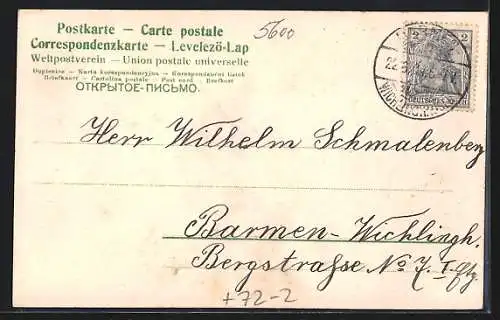 Postkarte – Carte postale
Correspondenzkarte – Levelező-Lap
Weltpostverein – Union postale universelle
Dopisnice – Karta korespondencyjna – Correspondenti kaart
Briefkaart – Cartolina postale – Post card – Brefkort
ОТКРЫТОЕ-ПИСЬМО.
5600
2 2
22
DEUTSCHES
Herr Wilhelm Schmalenberg
Barmen-Wichlingh.
Bergstraße No 7. I. Etg
+72-2